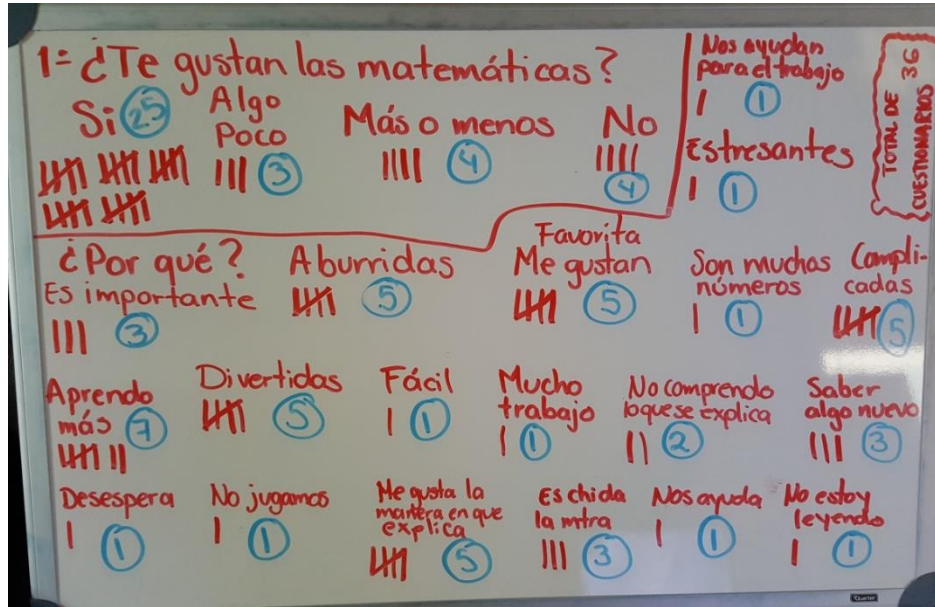 1= ¿Te gustan las matemáticas?
Si 25
Algo
Poco
3
Más o menos
4
No
4
Nos ayudan
para el trabajo
1
Estresantes
1
TOTAL DE 36
CUESTIONARIOS
¿Por qué?
Es importante
3
Aburridas
5
Favorita
Me gustan
5
Son muchas
números
1
Compli-
cadas
5
Aprendo
más 7
Divertidas
5
Fácil
1
Mucho
trabajo
1
No comprendo
loquese explica
2
Saber
algo nuevo
3
Desespera
1
No jugamos
1
Me gusta la
manera en que
explica
5
Es chida
la mtra
3
Nos ayuda
1
No estoy
leyendo
1